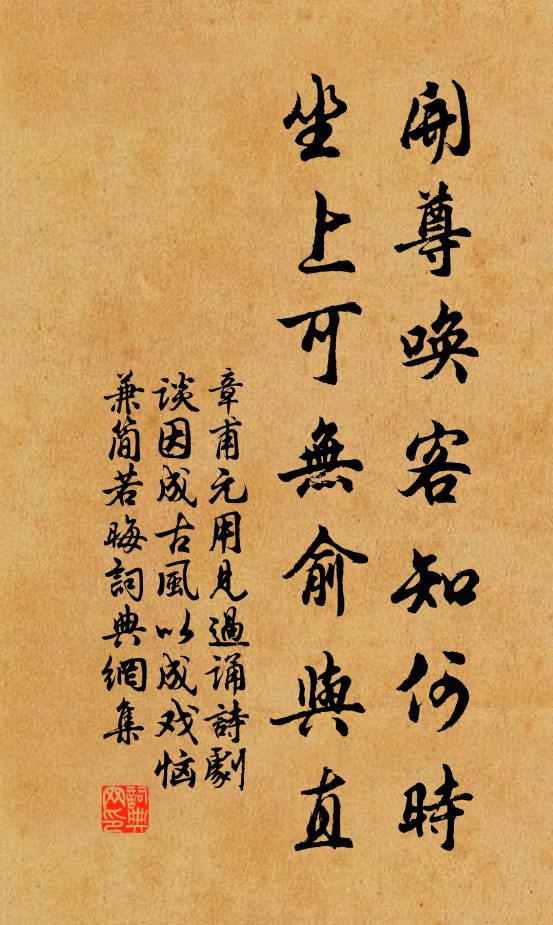 開尊喚客知何時
坐上可無俞與直
章甫元用見過誦詩劇
谈因成古風以成戏恼
兼简若晦詞典網集
詞典
網印